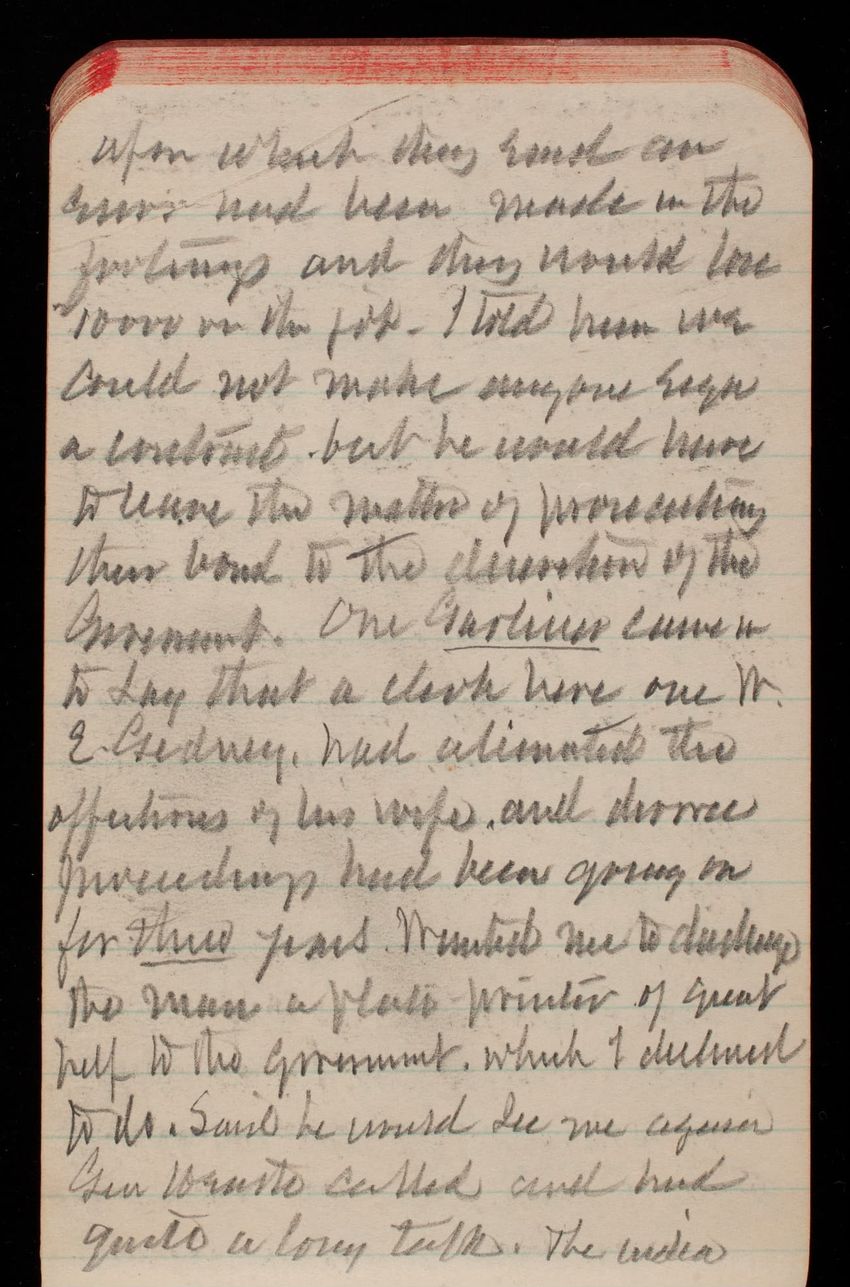 upon which they said an
error had been made in the
footings and they would lose
10000 on the job. I told him we
could not make anyone sign
a contract. but he would have
to leave the matter of prosecuting
their bond to the discretion of the
Government. One Gardiner came in
to say that a clerk here one W.
E Gedney, had alienated the
affections of his wife, and divorce
proceedings had been going on
for three years. Wanted me to discharge
the man a plate printer of great
help to the government. which I declined
to do. Said he would see me again
Gen called and had
quite a long talk. The